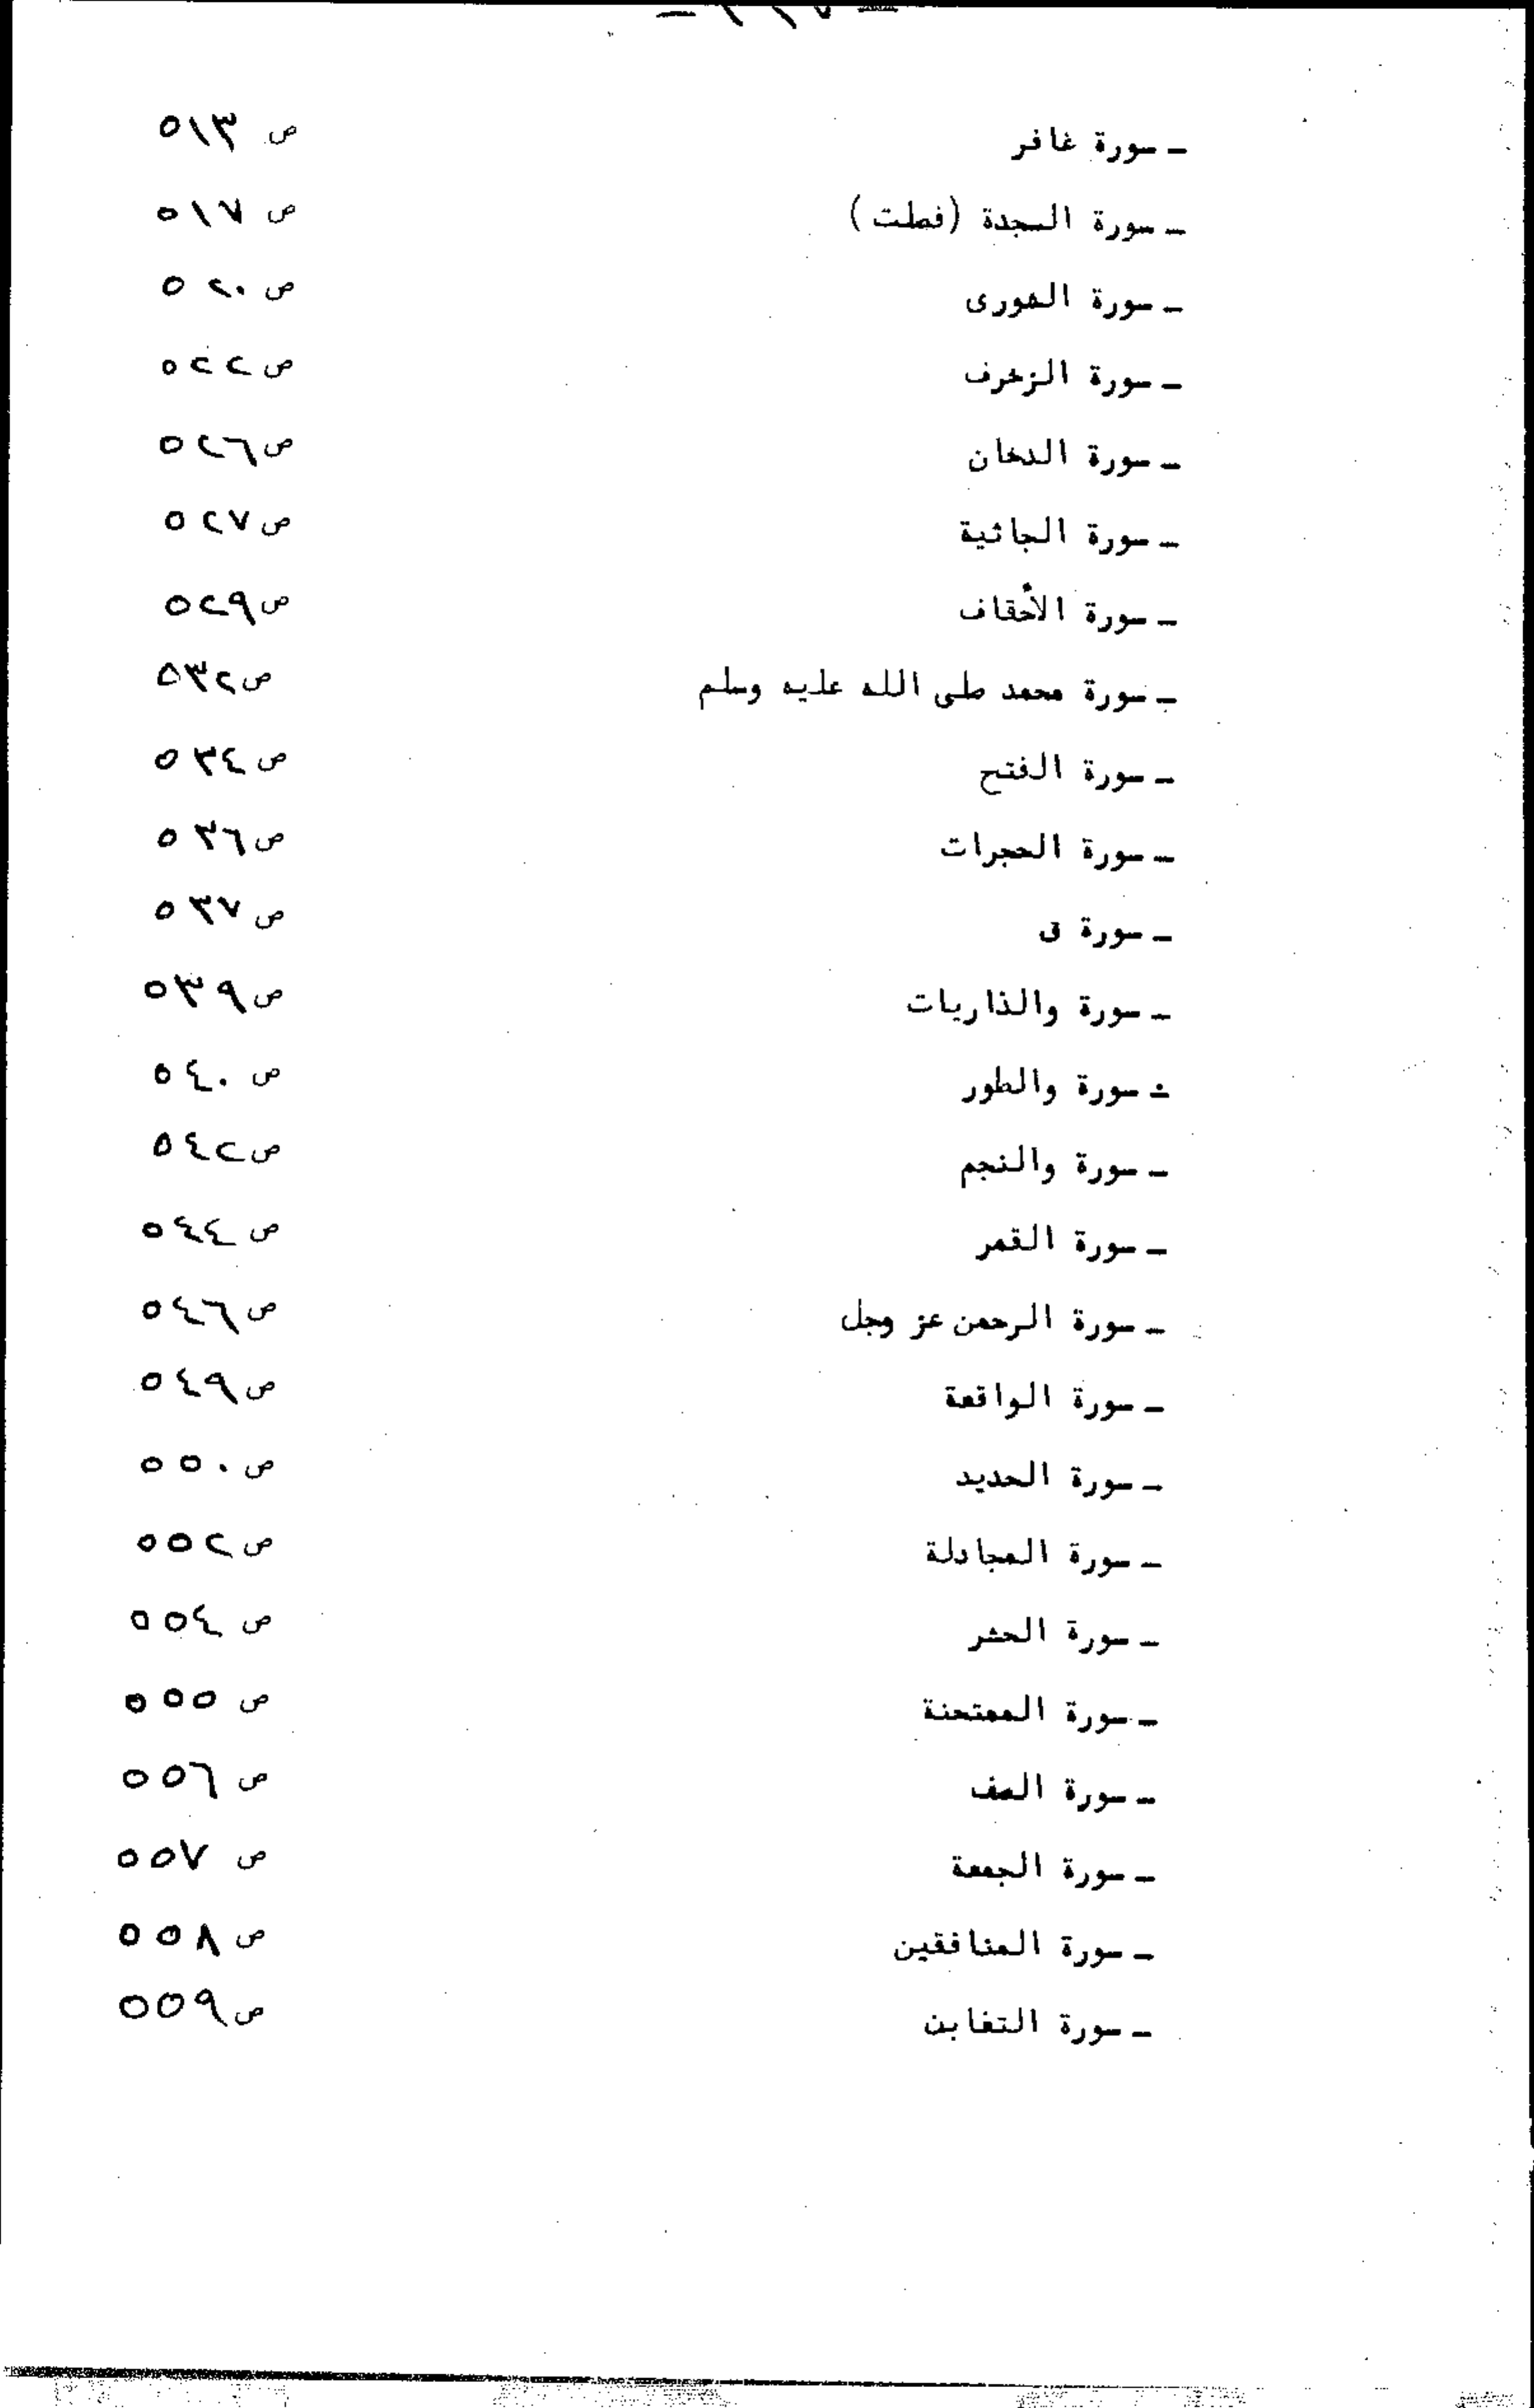 - سورة غافر ص ٥١٣
- سورة السجدة (فصلت) ص ٥١٧
- سورة الشورى ص ٥٢٠
- سورة الزخرف ص ٥٢٢
- سورة الدخان ص ٥٢٦
- سورة الجاثية ص ٥٢٧
- سورة الأحقاف ص ٥٢٩
- سورة محمد صلى الله عليه وسلم ص ٥٣٢
- سورة الفتح ص ٥٣٤
- سورة الحجرات ص ٥٣٦
- سورة ق ص ٥٣٧
- سورة والذاريات ص ٥٣٩
- سورة والطور ص ٥٤٠
- سورة والنجم ص ٥٤٢
- سورة القمر ص ٥٤٤
- سورة الرحمن عز وجل ص ٥٤٦
- سورة الواقعة ص ٥٤٩
- سورة الحديد ص ٥٥٠
- سورة المجادلة ص ٥٥٢
- سورة الحشر ص ٥٥٤
- سورة الممتحنة ص ٥٥٥
- سورة الصف ص ٥٥٦
- سورة الجمعة ص ٥٥٧
- سورة المنافقين ص ٥٥٨
- سورة التغابن ص ٥٥٩